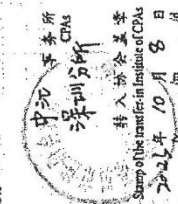 事务所
CPAs
中汇
深圳分所
转入协会盖章
Stamp of the transfer-in Institute of CPAs
10月8日